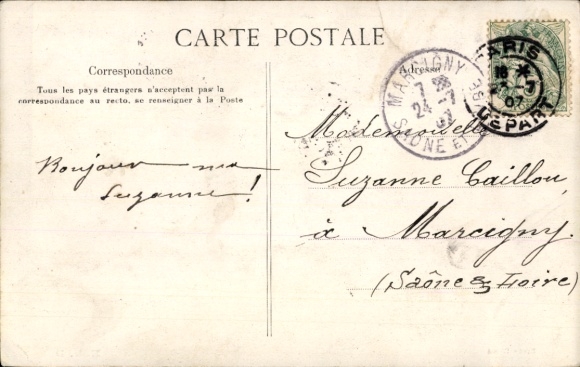 CARTE POSTALE
Correspondance
Tous les pays étrangers n'acceptent pas la
correspondance au recto, se renseigner à la Poste
Adresse
MARCIGNY
7
24 -7
07
SAONE ET
PARIS
18
23 -7
07
DEPART
Bonjour ma
Suzanne!
Mademoiselle
Suzanne Caillou
à Marcigny.
(Saône & Loire)